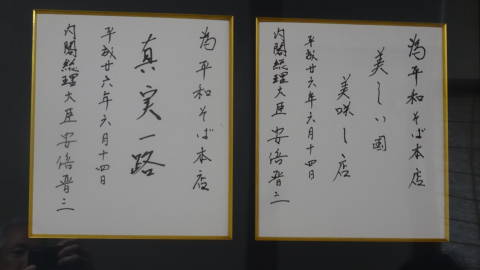 為平和そば本店
美しい國
美咲し店
平成廿六年六月十四日
内閣総理大臣 安倍晋三
為平和そば本店
真実一路
平成廿六年六月十四日
内閣総理大臣 安倍晋三